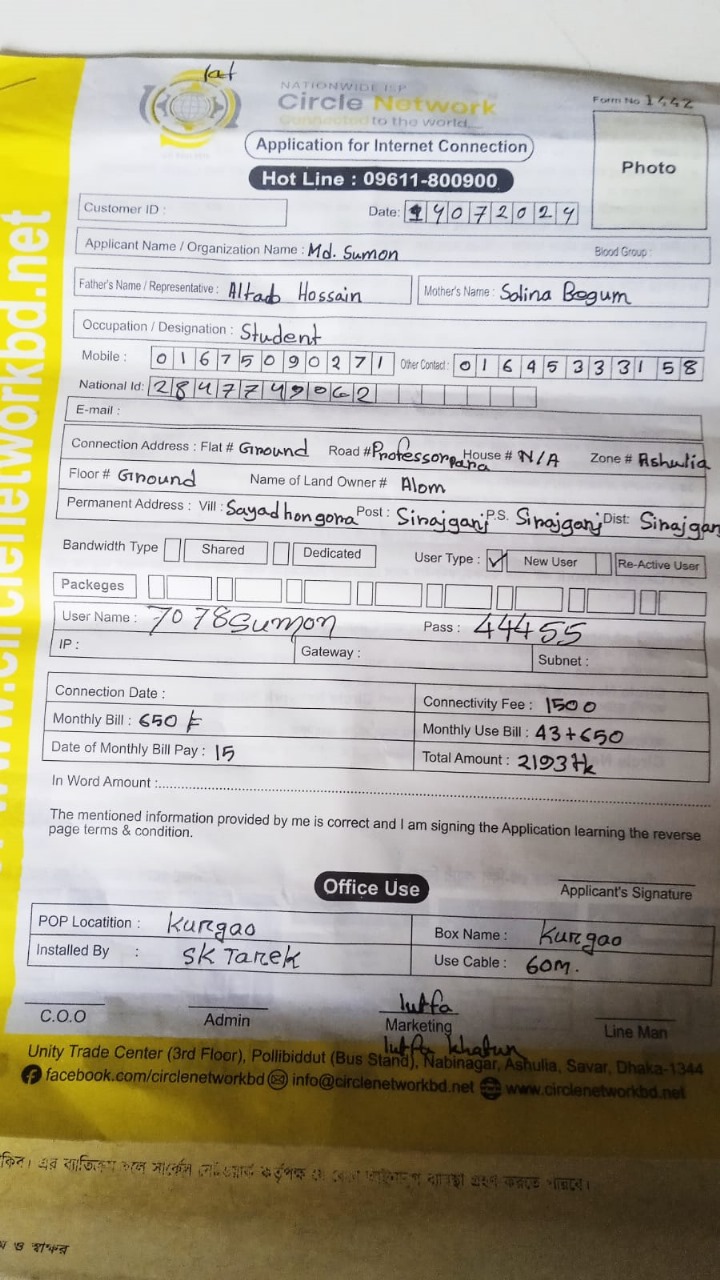 lat
NATIONWIDE ISP
Circle Network
Connected to the world...
Form No 1442
Application for Internet Connection
Photo
Hot Line : 09611-800900
Customer ID :
Date: 14072024
Applicant Name / Organization Name : Md. Sumon Blood Group :
Father's Name / Representative : Altab Hossain Mother's Name : Solina Begum
Occupation / Designation : Student
Mobile : 01675090271 Other Contact : 01645333158
National Id: 2847749062
E-mail :
Connection Address : Flat # Ground Road # Professorpara House # N/A Zone # Ashulia
Floor # Ground Name of Land Owner # Alom
Permanent Address : Vill : Sayadhongora Post : Sirajganj P.S. Sirajganj Dist: Sirajgan
Bandwidth Type Shared Dedicated User Type : ✓ New User Re-Active User
Packeges
User Name : 7078Sumon Pass : 44455
IP : Gateway : Subnet :
Connection Date : Connectivity Fee : 1500
Monthly Bill : 650 Monthly Use Bill : 43+650
Date of Monthly Bill Pay : 15 Total Amount : 2193 Tk
In Word Amount :
The mentioned information provided by me is correct and I am signing the Application learning the reverse
page terms & condition.
Office Use
Applicant's Signature
POP Locatition : Kurgao Box Name : Kurgao
Installed By : SK Tarek Use Cable : 60M.
lutfa
C.O.O Admin Marketing Line Man
lutfa khatun
Unity Trade Center (3rd Floor), Pollibiddut (Bus Stand), Nabinagar, Ashulia, Savar, Dhaka-1344
facebook.com/circlenetworkbd info@circlenetworkbd.net www.circlenetworkbd.net
www.circlenetworkbd.net
এর ব্যতিক্রম হলে সার্কেল নেটওয়ার্ক কর্তৃপক্ষ যে কোন আইনানুগ ব্যবস্থা গ্রহণ করতে পারবে।
ও স্বাক্ষর